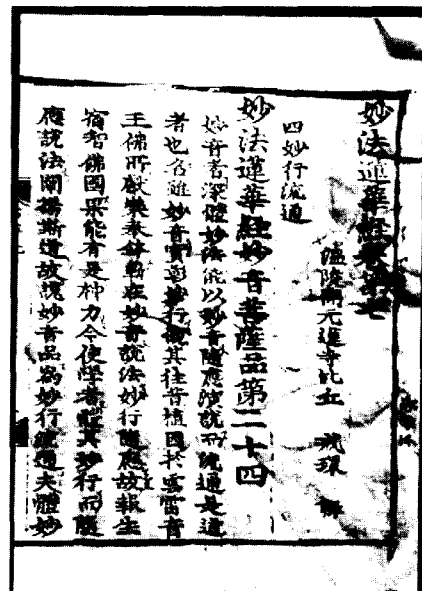 妙法蓮華經卷第七
溫陵開元蓮寺比丘 戒環 解
四妙行流通
妙法蓮華經妙音菩薩品第二十四
妙音者深體妙法能以妙音隨應演說而流通是道
者也名雖妙音實彰妙行觀其往昔植因於雲雷音
王佛所獻樂奉鉢在妙音說法妙行隨應故報生
宿智佛國果能有是神力今使學者體其妙行而隨
應說法闡揚斯道故說妙音品爲妙行流通夫體妙